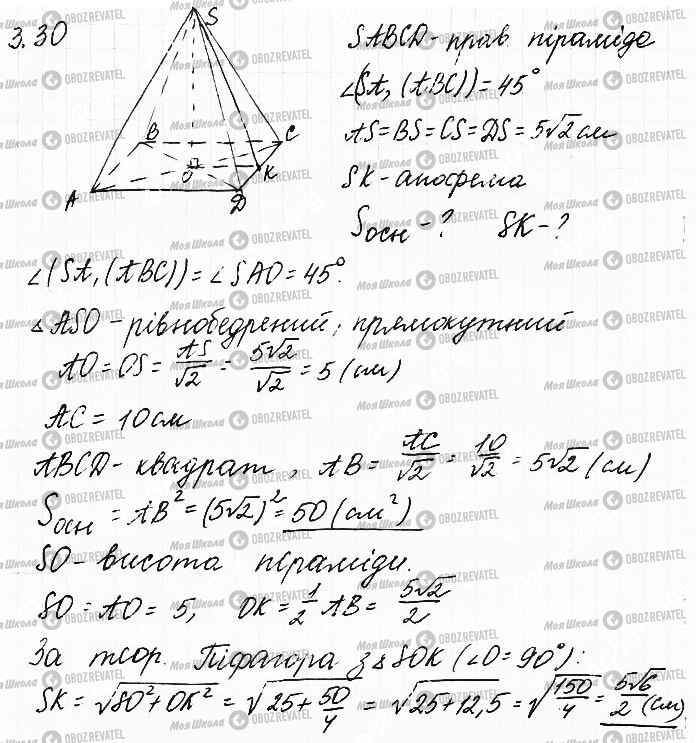 3.30
S
B
C
O
K
A
D
SABCD - прав піраміда
∠(SA, (ABC)) = 45°
AS = BS = CS = DS = 5√2 см
SK - апофема
Sосн - ? SK - ?
∠(SA, (ABC)) = ∠SAO = 45°.
△ASO - рівнобедрений, прямокутний
AO = OS = AS/√2 = 5√2/√2 = 5 (см)
AC = 10 см
ABCD - квадрат, AB = AC/√2 = 10/√2 = 5√2 (см)
Sосн = AB² = (5√2)² = 50 (см²)
SO - висота піраміди.
SO = AO = 5, OK = 1/2 AB = 5√2/2
За теор. Піфагора з △SOK (∠O = 90°):
SK = √(SO² + OK²) = √(25 + 50/4) = √(25 + 12,5) = √(150/4) = 5√6/2 (см)
Моя Школа OBOZREVATEL